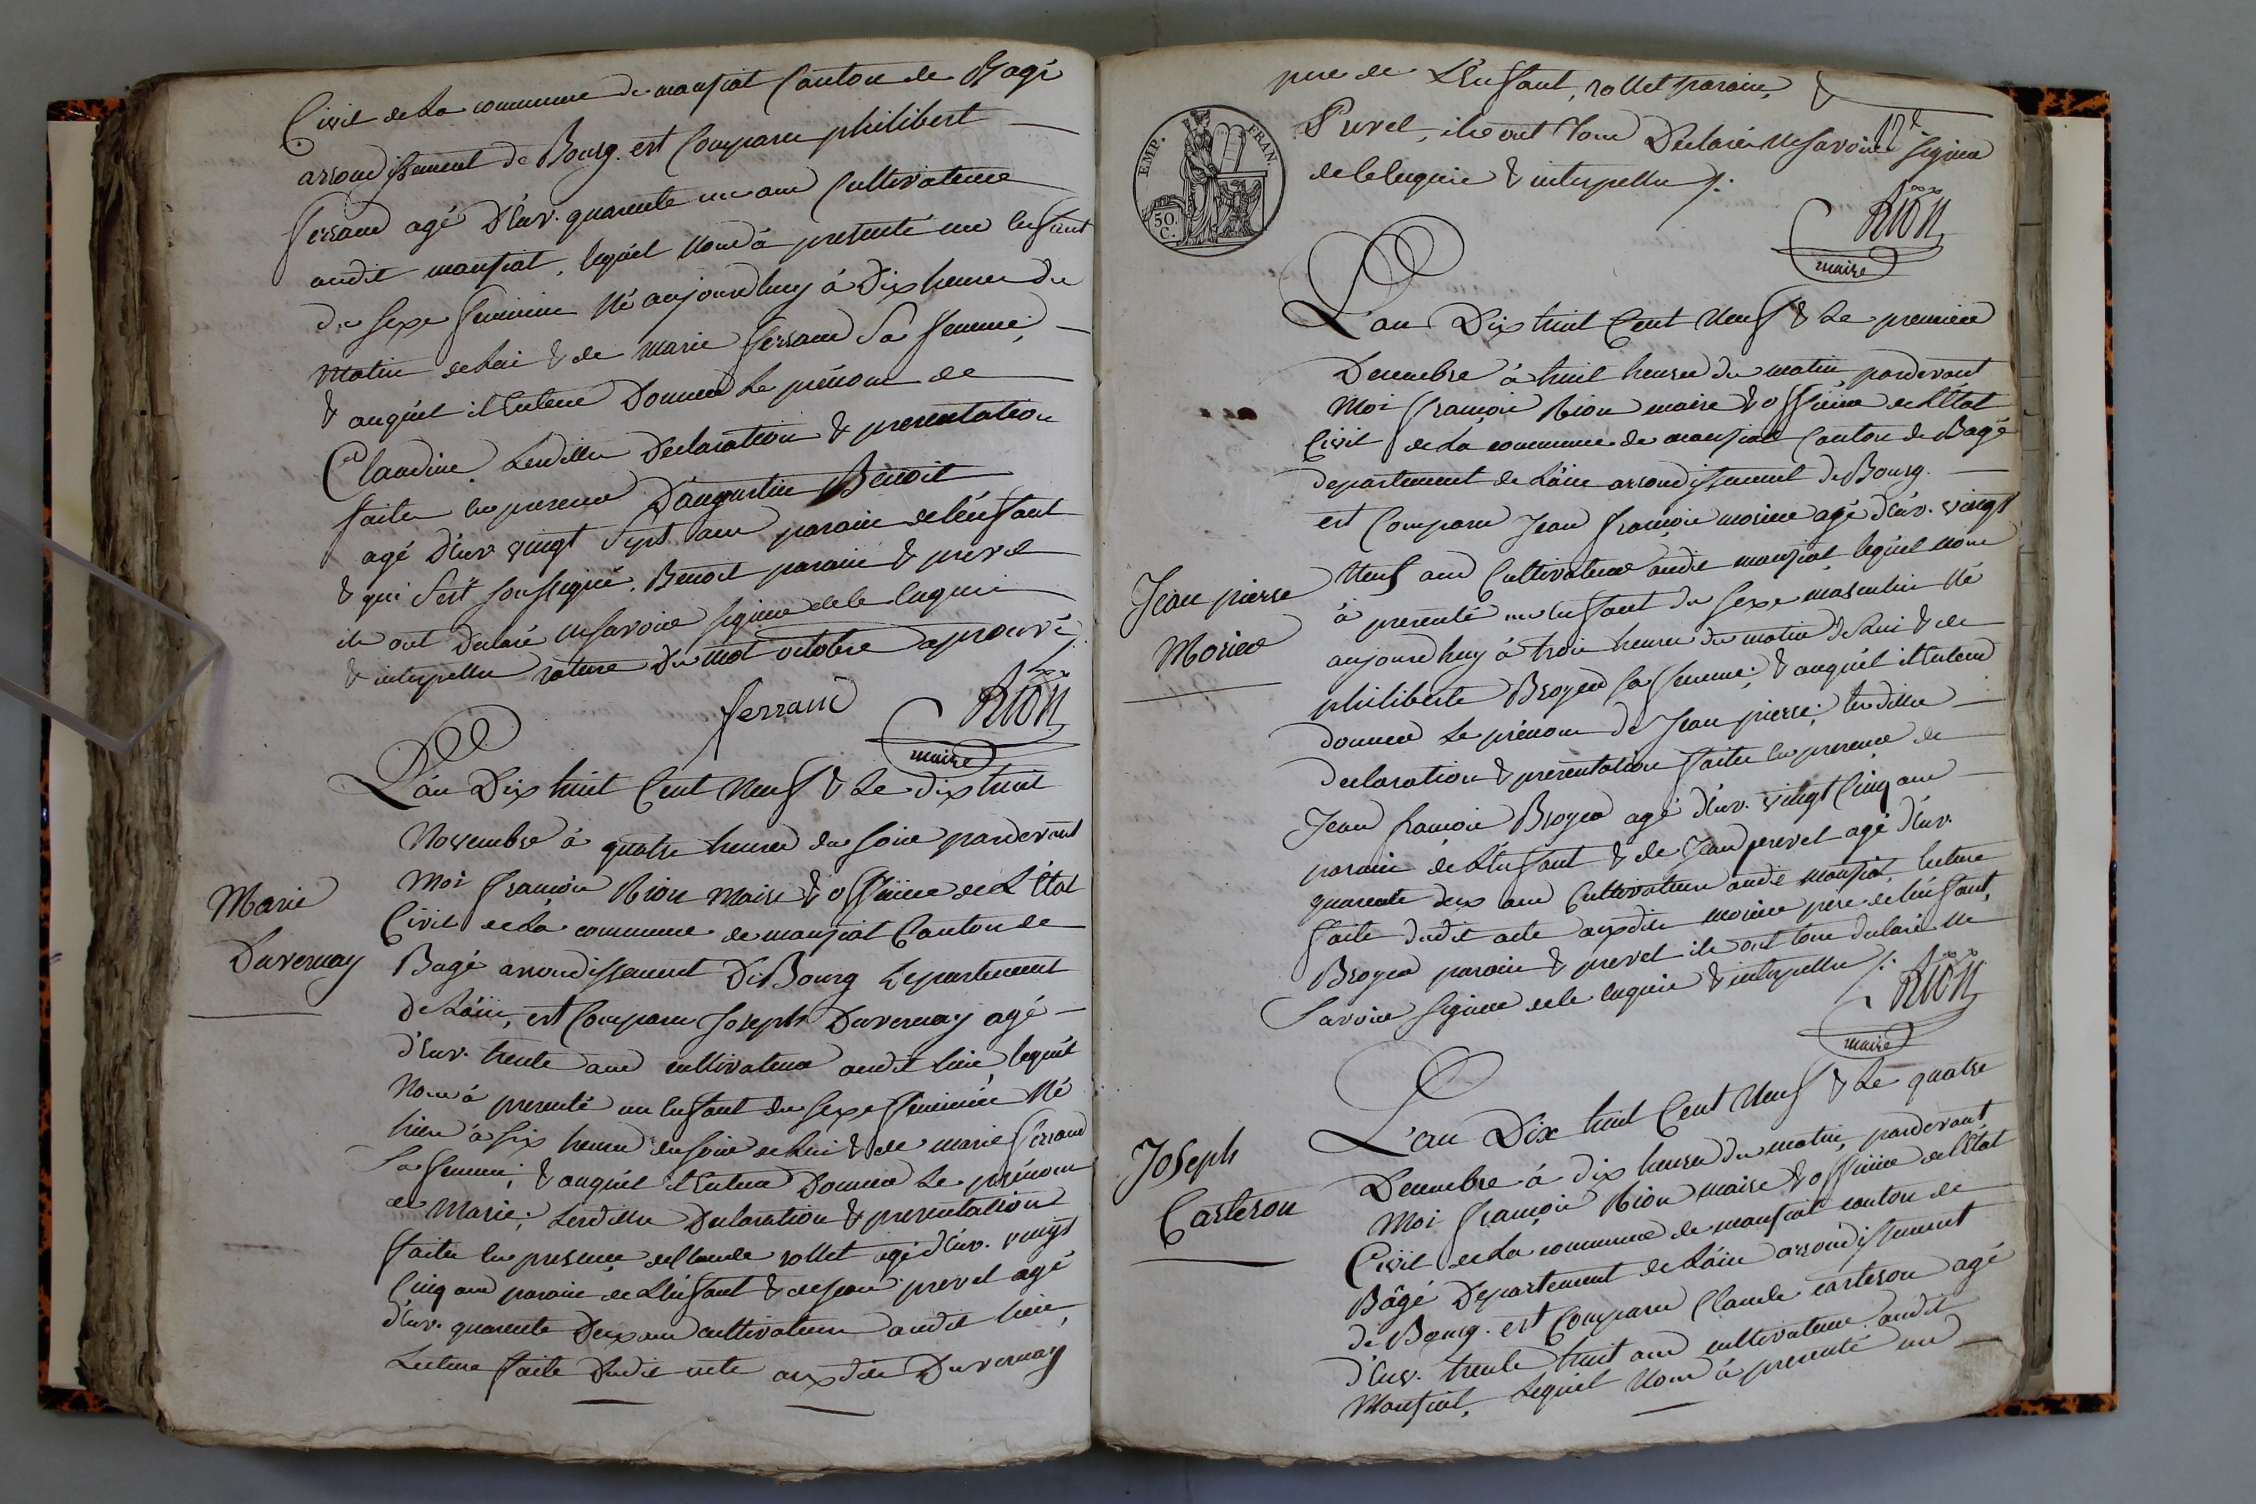 Civil de La commune de mansiat Canton de Bagé
arrondissement de Bourg. est Comparu philibert
ferrand agé D'env. quarente un ans Cultivateur
audit mansiat, lequel Nous à presenté un Enfant
du sexe feminin Né aujourdhuy à Dix heures du
Matin de Lui & de Marie ferrand Sa femme,
& auquel il Entend Donner Le prénom de
Claudine. Lesdittes Declaration & presentation
faites En presence D'augustin Benoit
agé D'env. vingt Sept ans parain de L'enfant
& qui S'est Soussigné. Benoit parain & prevel
ils ont Declaré Ne savoir signer de Ce Enquis
& interpellés rature Du mot octobre aprouvé ./.
ferrand
Rion
maire
L'an Dix huit Cent Neuf & Le dix huit
Marie
Duvernay
Novembre à quatre heures du soir pardevant
Moi françois Rion Maire & officier de L'Etat
Civil de La commune de mansiat Canton de
Bagé arrondissement De Bourg Departement
de L'ain, est Comparu Joseph Duvernay agé
d'env. trente ans cultivateur audit lieu, lequel
Nous à presenté un Enfant du sexe feminin Né
hier à six heures du soir de Lui & de marie ferrand
Sa femme; & auquel il Entend Donner Le prénom
de Marie; Lesdittes Declaration & presentation
faites En presence de Claude rollet agé d'env. vingt
Cinq ans parain de L'enfant & de Jean prevel agé
d'env. quarente Deux ans cultivateurs audit lieu,
Lecture faite Dudit acte auxdits Duvernay
pere de L'Enfant, rollet parain, &
12e
Prevel, ils ont Tous Declaré Ne savoir signer
de Ce Enquis & interpellés ./.
EMP. FRAN.
50. C.
Rion
maire
L'an Dix huit Cent Neuf & Le premier
Decembre à huit heures du matin, pardevant
Moi françois Rion maire & officier de L'Etat
Civil de La commune de mansiat Canton de Bagé
departement de L'ain arrondissement de Bourg.
est Comparu Jean françois morier agé d'env. vingt
Jean pierre
Morier
Neuf ans Cultivateur audit mansiat, lequel Nous
à presenté un Enfant du sexe masculin Né
aujourdhuy à trois heures du matin de Lui & de
philiberte Broyer sa femme; & auquel il Entend
donner Le prénom de Jean pierre; lesdittes
declaration & presentation faites En presence de
Jean françois Broyer agé d'env. vingt Cinq ans
parain de L'Enfant & de Jean prevel agé d'env.
quarente deux ans Cultivateurs audit mansiat, lecture
faite dudit acte auxdits morier pere de l'enfant,
Broyer parain & prevel ils ont tous declaré Ne
Savoir signer de Ce Enquis & interpellés ./.
Rion
maire
L'an Dix huit Cent Neuf & Le quatre
Joseph
Carteron
Decembre à dix heures du matin, pardevant
Moi françois Rion maire & officier de L'Etat
Civil de La commune de mansiat canton de
Bâgé Departement de L'ain arrondissement
de Bourg. est Comparu Claude carteron agé
d'env. trente huit ans cultivateur audit
Mansiat, Lequel Nous à presenté un